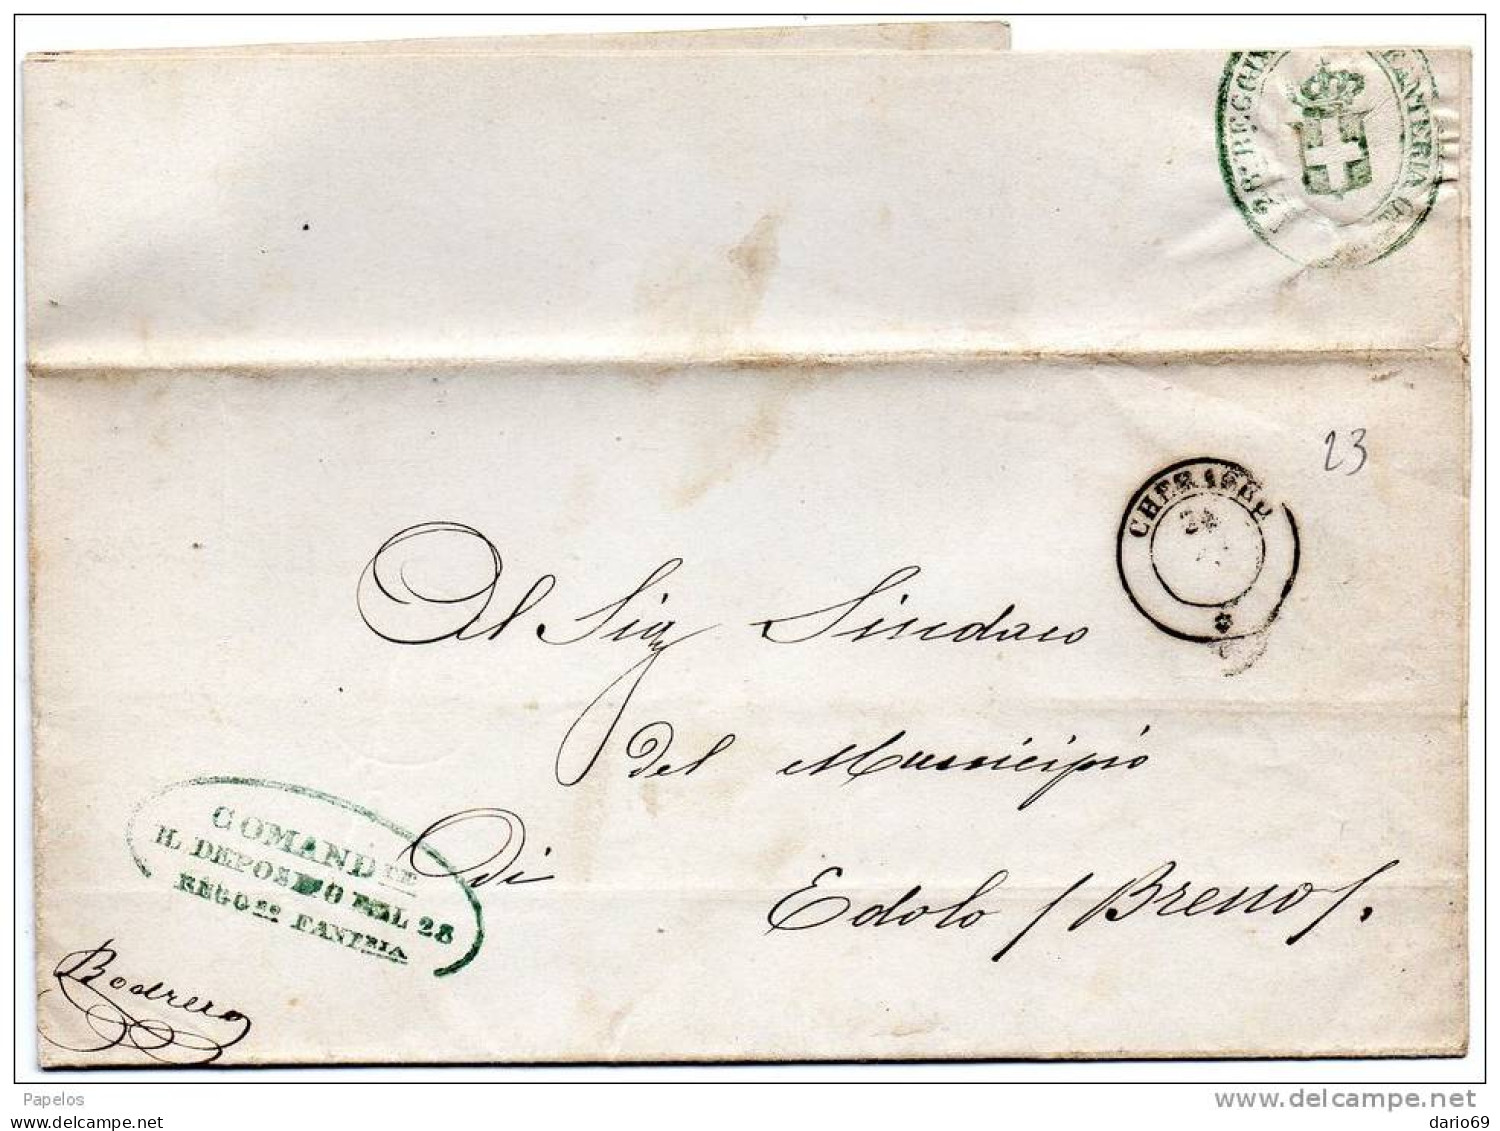 28º REGGIM FANTERIA
23
CHERASCO
24
Al Sig. Sindaco
del Municipio
Di
Edolo / Breno /.
COMANDTE
IL DEPOSITO DEL 28
REGGto FANTRIA
Bodrero
Papelos
www.delcampe.net
www.delcampe.net
dario69